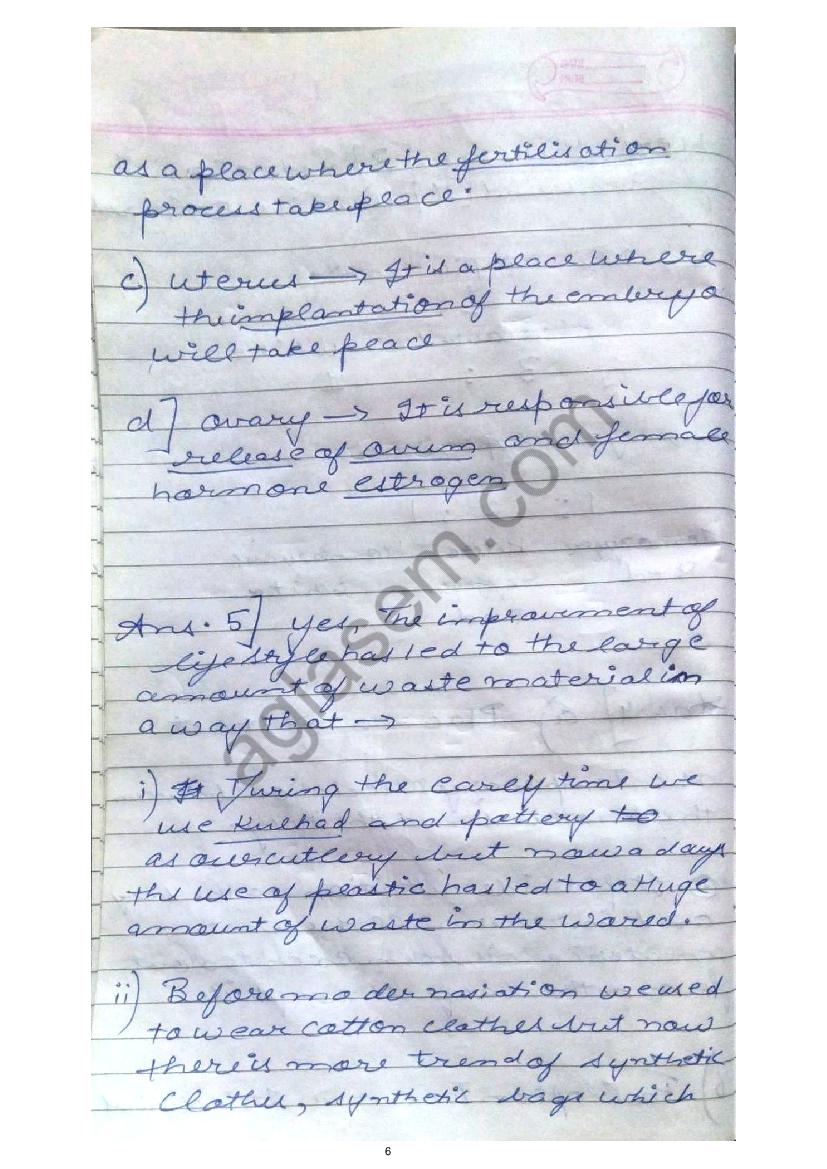 as a place where the fertilisation
process take place.
c) uterus → It is a place where
the implantation of the embryo
will take place
d] ovary → It is responsible for
release of ovum and female
hormone estrogen
Ans. 5] yes, The improvment of
life style has led to the large
amount of waste material in
a way that →
i) During the early time we
use Kulhad and pottery to
as our cutlery but now a days
the use of plastic has led to a Huge
amount of waste in the world.
ii) Before modernasiation we used
to wear cotton clothes but now
there is more trend of synthetic
clothes, synthetic bags which
aglasem.com
6